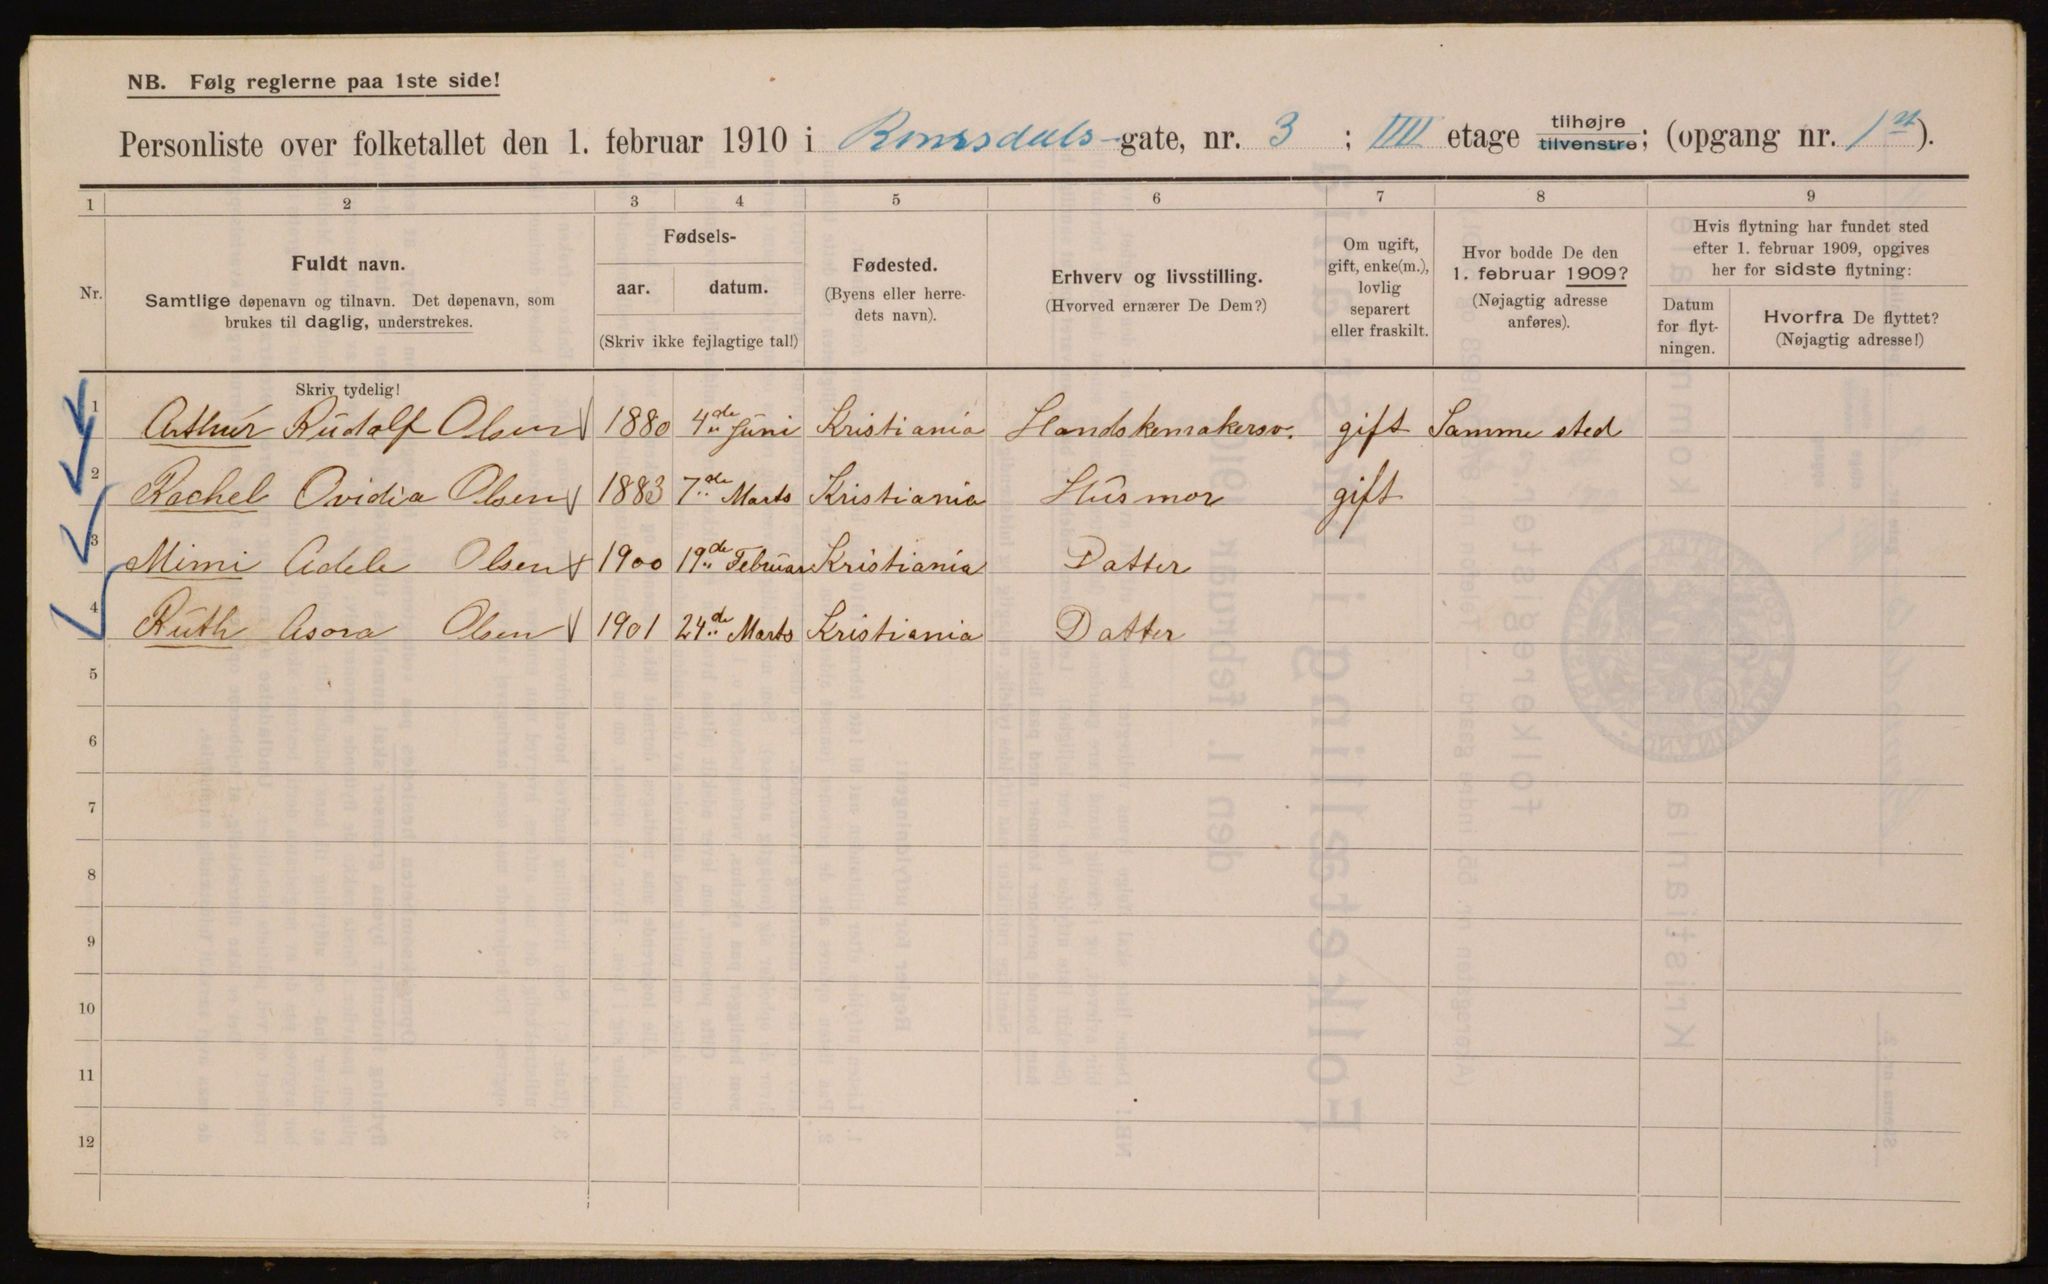 NB. Følg reglerne paa 1ste side!
Personliste over folketallet den 1. februar 1910 i Romsdals-gate, nr. 3 ; IIII etage tilhøjre tilvenstre; (opgang nr. 1st).
1 2 3 4 5 6 7 8 9
Nr.
Fuldt navn.
Samtlige døpenavn og tilnavn. Det døpenavn, som
brukes til daglig, understrekes.
Fødsels-
aar. datum.
(Skriv ikke fejlagtige tal!)
Fødested.
(Byens eller herre-
dets navn).
Erhverv og livsstilling.
(Hvorved ernærer De Dem?)
Om ugift,
gift, enke(m.),
lovlig
separert
eller fraskilt.
Hvor bodde De den
1. februar 1909?
(Nøjagtig adresse
anføres).
Hvis flytning har fundet sted
efter 1. februar 1909, opgives
her for sidste flytning:
Datum
for flyt-
ningen.
Hvorfra De flyttet?
(Nøjagtig adresse!)
Skriv tydelig!
1 Arthur Rudolf Olsen 1880 4de Juni Kristiania Handskemakersv. gift Samme sted
2 Rachel Ovidia Olsen 1883 7de Marts Kristiania Husmor gift
3 Mimi Adele Olsen 1900 19de Februar Kristiania Datter
4 Ruth Asora Olsen 1901 24de Marts Kristiania Datter
5
6
7
8
9
10
11
12